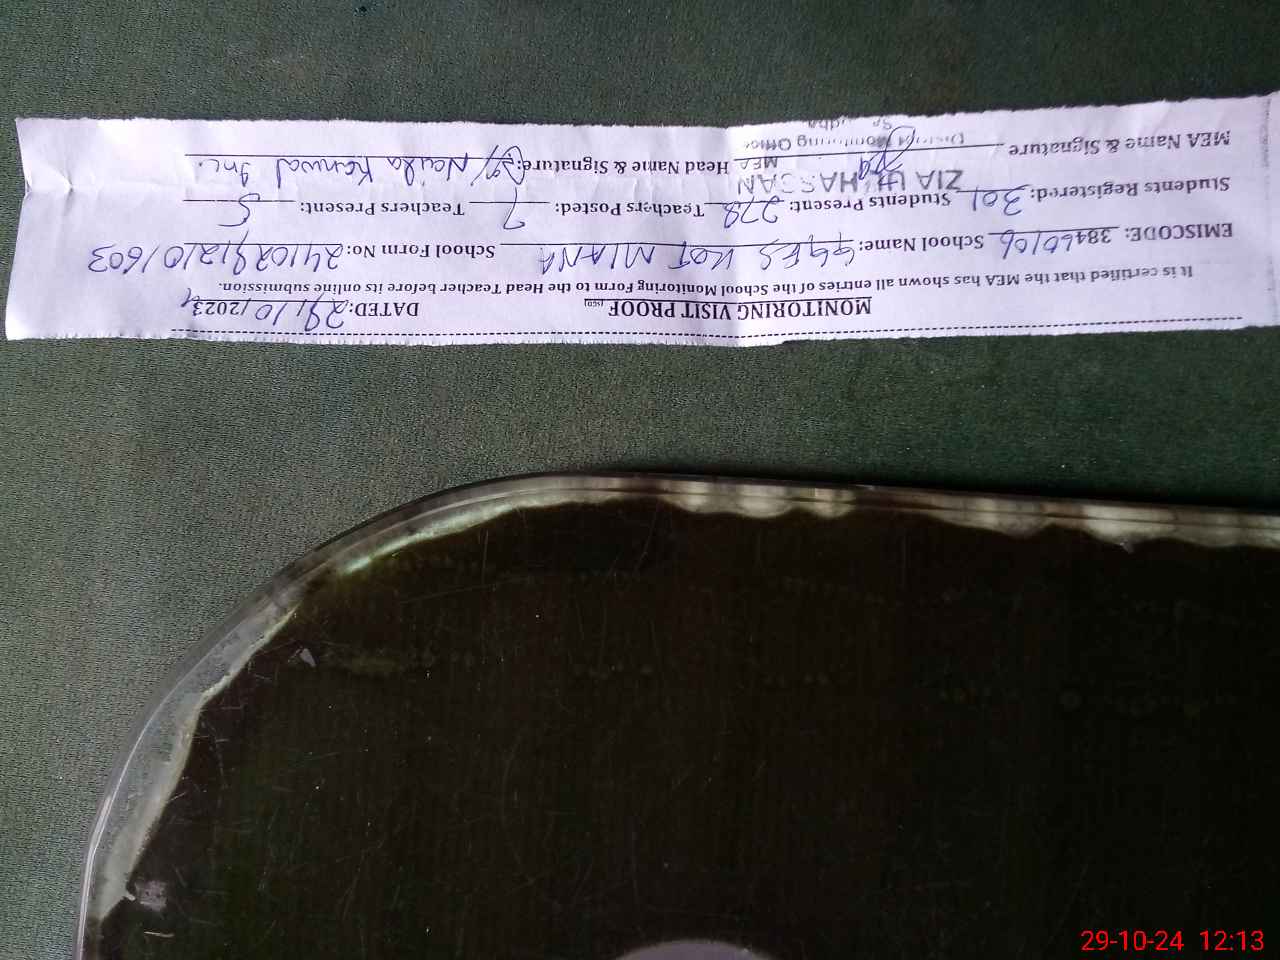 MONITORING VISIT PROOF [SED] DATED: 29/10/2024
It is certified that the MEA has shown all entries of the School Monitoring Form to the Head Teacher before its online submission.
EMISCODE: 38460106 School Name: GGES KOT MIANA School Form No: 24102912101603
Students Registered: 301 Students Present: 278 Teachers Posted: 7 Teachers Present: 5
MEA Name & Signature Head Name & Signature: Naila Kanwal Inc.
ZIA UL HASSAN
MEA
District Monitoring Office
29-10-24 12:13